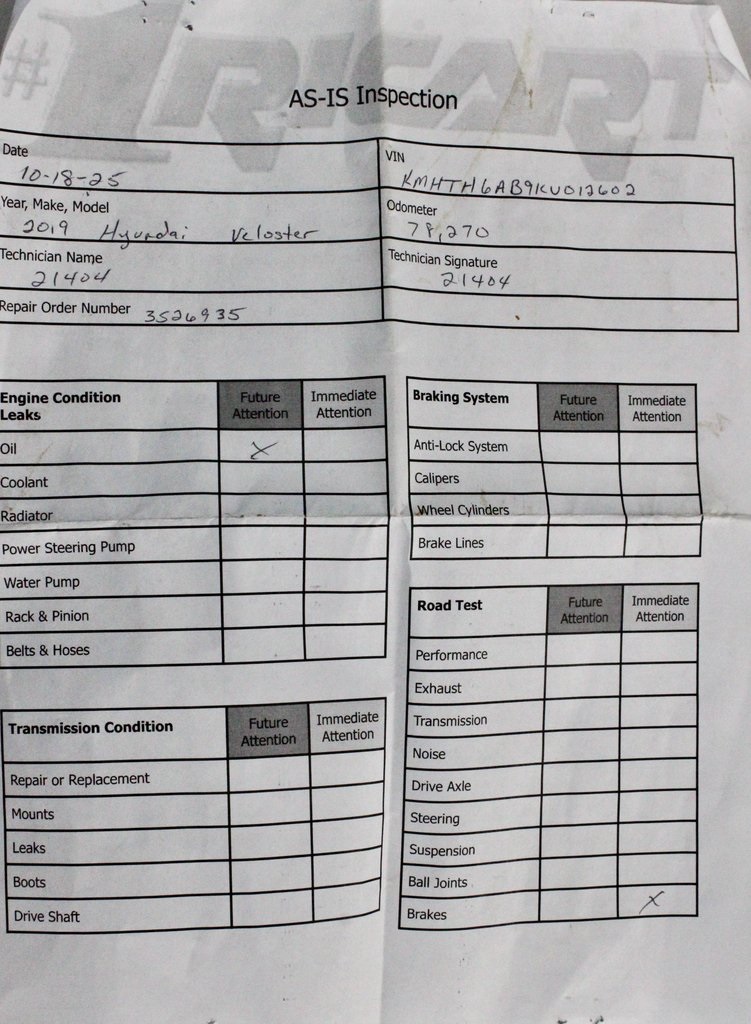 #1 RICART
AS-IS Inspection
Date
10-18-25
VIN
KMHTH6AB9KU012602
Year, Make, Model
2019 Hyundai Veloster
Odometer
78,270
Technician Name
21404
Technician Signature
21404
Repair Order Number 3526935
Engine Condition Leaks Future Attention Immediate Attention
Oil X
Coolant
Radiator
Power Steering Pump
Water Pump
Rack & Pinion
Belts & Hoses
Transmission Condition Future Attention Immediate Attention
Repair or Replacement
Mounts
Leaks
Boots
Drive Shaft
Braking System Future Attention Immediate Attention
Anti-Lock System
Calipers
Wheel Cylinders
Brake Lines
Road Test Future Attention Immediate Attention
Performance
Exhaust
Transmission
Noise
Drive Axle
Steering
Suspension
Ball Joints
Brakes X